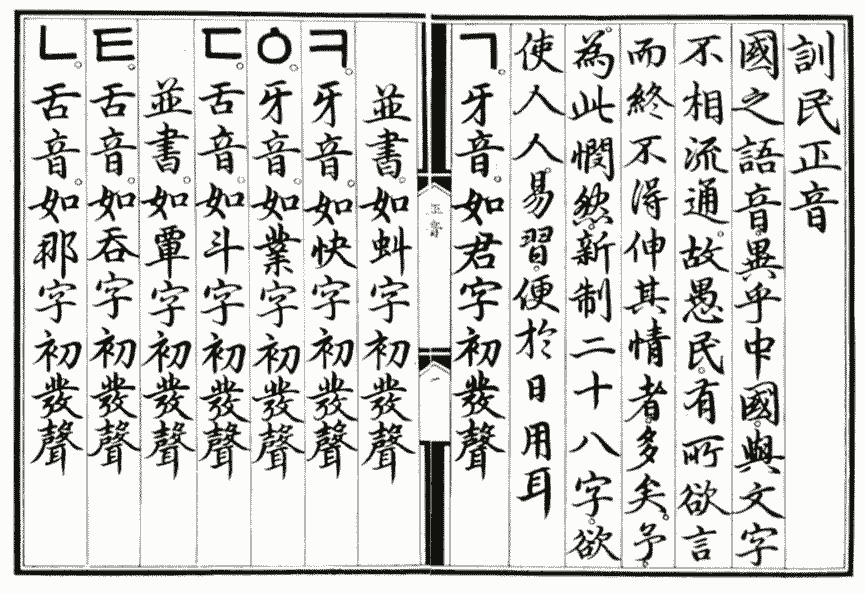 訓民正音
國之語音。異乎中國。與文字
不相流通。故愚民。有所欲言
而終不得伸其情者。多矣。予
為此憫然。新制二十八字。欲
使人人易習。便於日用耳
ㄱ。牙音。如君字初發聲
正音
一
並書。如虯字初發聲
ㅋ。牙音。如快字初發聲
ㆁ。牙音。如業字初發聲
ㄷ。舌音。如斗字初發聲
並書。如覃字初發聲
ㅌ。舌音。如呑字初發聲
ㄴ。舌音。如那字初發聲